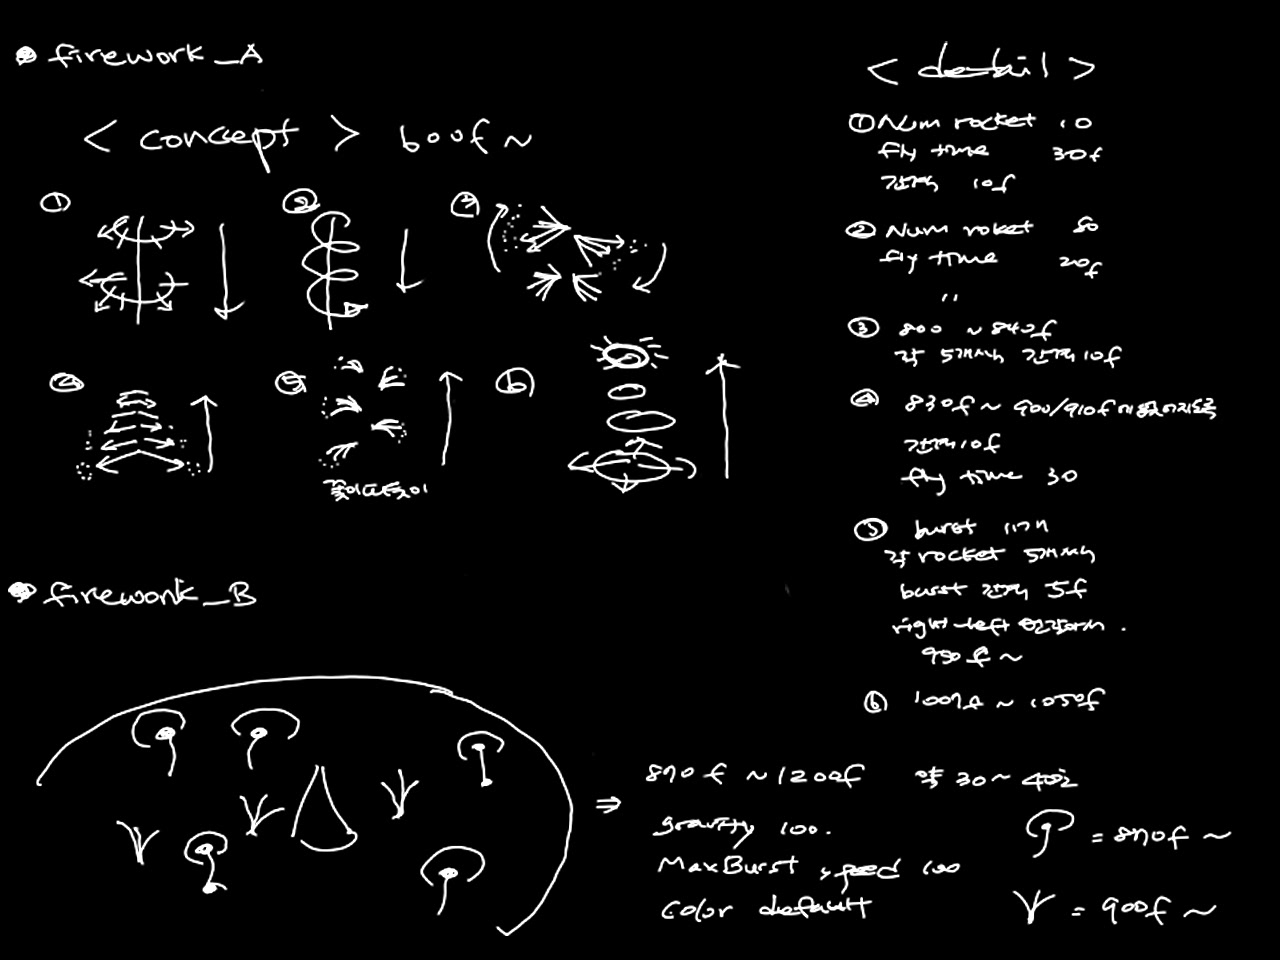 firework_A
< concept > 600f ~
①
②
③
④
⑤
⑥
꽃이 피듯이
< detail >
① Num rocket 10
fly time 30f
간격 10f
② Num roket 80
fly time 20f
"
③ 800 ~ 840f
각 5개씩 간격 10f
④ 830f ~ 900/910f
간격 10f
fly time 30
⑤ burst 11개
각 rocket 5개씩
burst 간격 5f
right-left
950f ~
⑥ ~ 1050f
firework_B
⇒ 870f ~ 1200f 약 30 ~ 40초
gravity 100.
MaxBurst speed 100
Color default
= 870f ~
= 900f ~